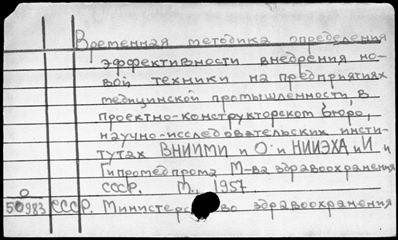 Временная методика определения
эффективности внедрения но-
вой техники на предприятиях
медицинской промышленности, в
проектно-конструкторском бюро,
научно-исследовательских инсти-
тутах ВНИИМИ и О. и НИИЭХА и И. и
Гипромедпрома М-ва здравоохранения
СССР. М., 1957.
0
50983 СССР. Министерство здравоохранения